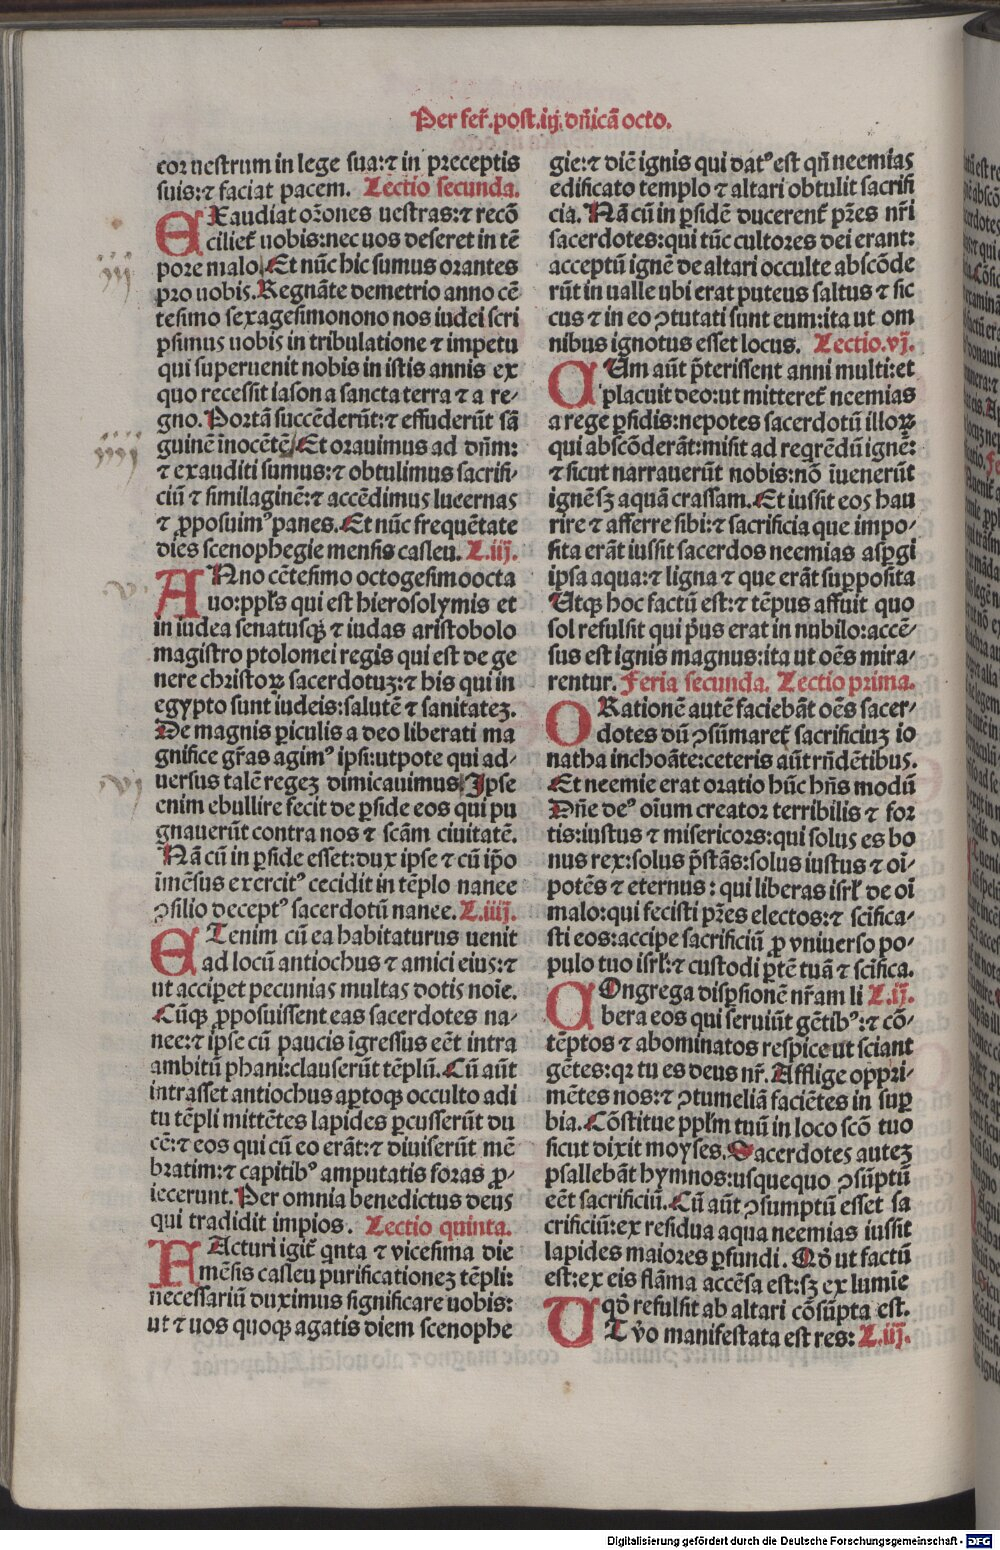 Per fer̃.post.iij.dñicã octo.
cor uestrum in lege sua:⁊ in preceptis
suis:⁊ faciat pacem. Lectio secunda.
EXaudiat or̃ones uestras:⁊ recõ
cilieť uobis:nec uos deseret in tẽ
pore malo. Et nũc hic sumus orantes
pro uobis. Regnãte demetrio anno cẽ
tesimo sexagesimonono nos iudei scri
psimus uobis in tribulatione ⁊ impetu
qui superuenit nobis in istis annis ex
quo recessit iason a sancta terra ⁊ a re-
gno. Portã succẽderũt:⁊ effuderũt sã
guinẽ ĩnocẽtẽ. Et orauimus ad dñm:
⁊ exauditi sumus:⁊ obtulimus sacrifi-
ciũ ⁊ similaginẽ:⁊ accẽdimus lucernas
⁊ ꝓposuimꝰ panes. Et nũc frequẽtate
dies scenophegie mensis casleu. L.iij.
ANno cẽtesimo octogesimoocta
uo:ppl̃s qui est hierosolymis et
in iudea senatusqꝫ ⁊ iudas aristobolo
magistro ptolomei regis qui est de ge
nere christoꝝ sacerdotuꝫ:⁊ his qui in
egypto sunt iudeis:salutẽ ⁊ sanitateꝫ.
De magnis ꝑiculis a deo liberati ma
gnifice gr̃as agimꝰ ipsi:utpote qui ad-
uersus talẽ regeꝫ dimicauimus. Ipse
enim ebullire fecit de ꝑside eos qui pu
gnauerũt contra nos ⁊ scãm ciuitatẽ.
Nã cũ in ꝑside esset:dux ipse ⁊ cũ ip̃o
ĩmẽsus exercitꝰ cecidit in tẽplo nanee
ꝯsilio deceptꝰ sacerdotũ nanee. L.iiij.
ETenim cũ ea habitaturus uenit
ad locũ antiochus ⁊ amici eius:⁊
ut acciꝑet pecunias multas dotis noĩe.
Cũqꝫ ꝓposuissent eas sacerdotes na-
nee:⁊ ipse cũ paucis ĩgressus eẽt intra
ambitũ phani:clauserũt tẽplũ. Cũ aũt
intrasset antiochus aꝑtoqꝫ occulto adi
tu tẽpli mittẽtes lapides ꝑcusserũt du
cẽ:⁊ eos qui cũ eo erãt:⁊ diuiserũt mẽ
bratim:⁊ capitibꝰ amputatis foras ꝓ-
iecerunt. Per omnia benedictus deus
qui tradidit impios. Lectio quinta.
FActuri igiť qnta ⁊ vicesima die
mẽsis casleu purificationeꝫ tẽpli:
necessariũ duximus significare uobis:
ut ⁊ uos quoqꝫ agatis diem scenophe
gie:⁊ diẽ ignis qui datꝰ est qñ neemias
edificato templo ⁊ altari obtulit sacrifi
cia. Nã cũ in ꝑsidẽ ducerenť pr̃es nr̃i
sacerdotes:qui tũc cultores dei erant:
acceptũ ignẽ de altari occulte abscõde
rũt in ualle ubi erat puteus saltus ⁊ sic
cus ⁊ in eo ꝯtutati sunt eum:ita ut om
nibus ignotus esset locus. Lectio.vj.
CUm aũt p̃terissent anni multi:et
placuit deo:ut mittereť neemias
a rege ꝑsidis:nepotes sacerdotũ illoꝝ
qui abscõderãt:misit ad reqrẽdũ ignẽ:
⁊ sicut narrauerũt nobis:nõ ĩuenerũt
ignẽ sꝫ aquã crassam. Et iussit eos hau
rire ⁊ afferre sibi:⁊ sacrificia que impo-
sita erãt iussit sacerdos neemias asꝑgi
ipsa aqua:⁊ ligna ⁊ que erãt suꝑposita
Utqꝫ hoc factũ est:⁊ tẽpus affuit quo
sol refulsit qui p̃us erat in nubilo:accẽ-
sus est ignis magnus:ita ut oẽs mira-
rentur. Feria secunda. Lectio prima.
ORationẽ autẽ faciebãt oẽs sacer-
dotes dũ ꝯsũmareť sacrificiuꝫ io
natha inchoãte:ceteris aũt rñdẽtibus.
Et neemie erat oratio hũc hñs modũ
Dñe deꝰ oĩum creator terribilis ⁊ for
tis:iustus ⁊ misericors:qui solus es bo
nus rex:solus p̃stãs:solus iustus ⁊ oĩ-
potẽs ⁊ eternus: qui liberas isrl̃ de oĩ
malo:qui fecisti pr̃es electos:⁊ scifica-
sti eos:accipe sacrificiũ ꝓ vniuerso po-
pulo tuo isrl̃:⁊ custodi ꝑtẽ tuã ⁊ scifica.
COngrega disꝑsionẽ nr̃am li L.ij.
bera eos qui seruiũt gẽtibꝰ:⁊ cõ-
tẽptos ⁊ abominatos respice ut sciant
gẽtes:qꝛ tu es deus nr̃. Afflige oppri-
mẽtes nos:⁊ ꝯtumeliã faciẽtes in suꝑ
bia. Cõstitue ppl̃m tuũ in loco scõ tuo
sicut dixit moyses. Sacerdotes auteꝫ
psallebãt hymnos:usquequo ꝯsũptũ
eẽt sacrificiũ. Cũ aũt ꝯsumptũ esset sa
crificiũ:ex residua aqua neemias iussit
lapides maiores ꝑfundi. Qd̾ ut factũ
est:ex eis flãma accẽsa est:sꝫ ex lumĩe
qd̾ refulsit ab altari cõsũpta est.
UT v̾o manifestata est res: L.iij.
iij
iiij
v
vi
Digitalisierung gefördert durch die Deutsche Forschungsgemeinschaft - DFG